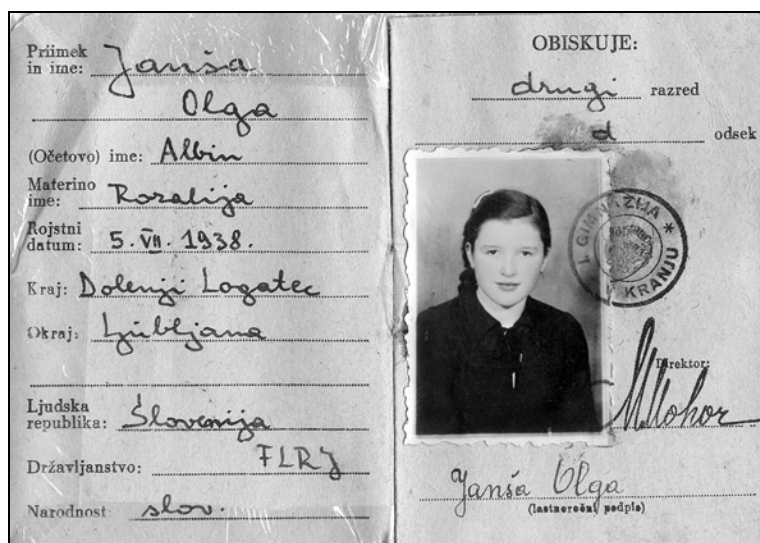 Priimek
in ime: Janša
Olga
(Očetovo) ime: Albin
Materino
ime: Rozalija
Rojstni
datum: 5. VII. 1938.
Kraj: Dolenji Logatec
Okraj: Ljubljana
Ljudska
republika: Slovenija
Državljanstvo: FLRJ
Narodnost slov.
OBISKUJE:
drugi razred
d odsek
I. GIMNAZIJA * V KRANJU
Direktor:
Janša Olga
(lastnoročni podpis)